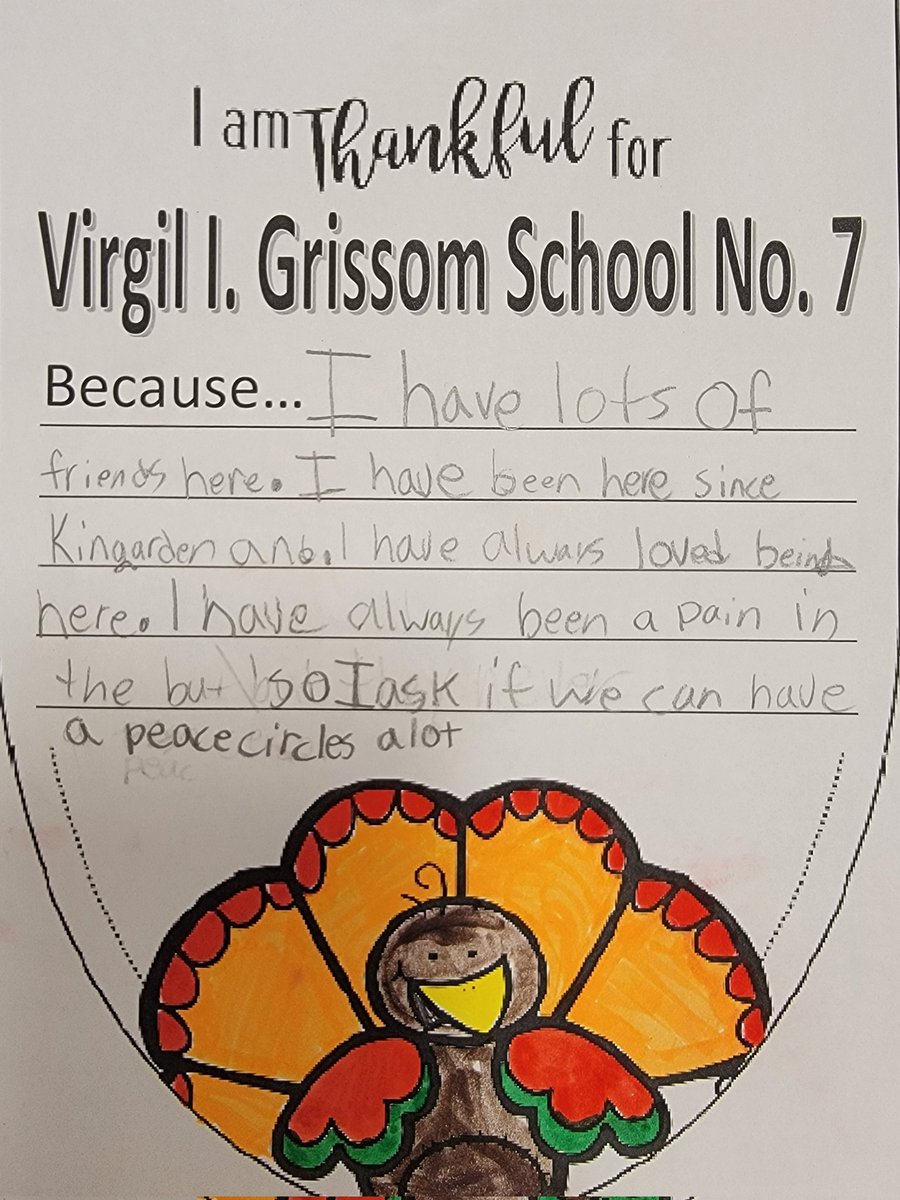 I am Thankful for
Virgil I. Grissom School No. 7
Because... I have lots of
friends here. I have been here since
Kingarden anb. I have always loved being
here. I have always been a pain in
the but so I ask if we can have
a peace circles alot